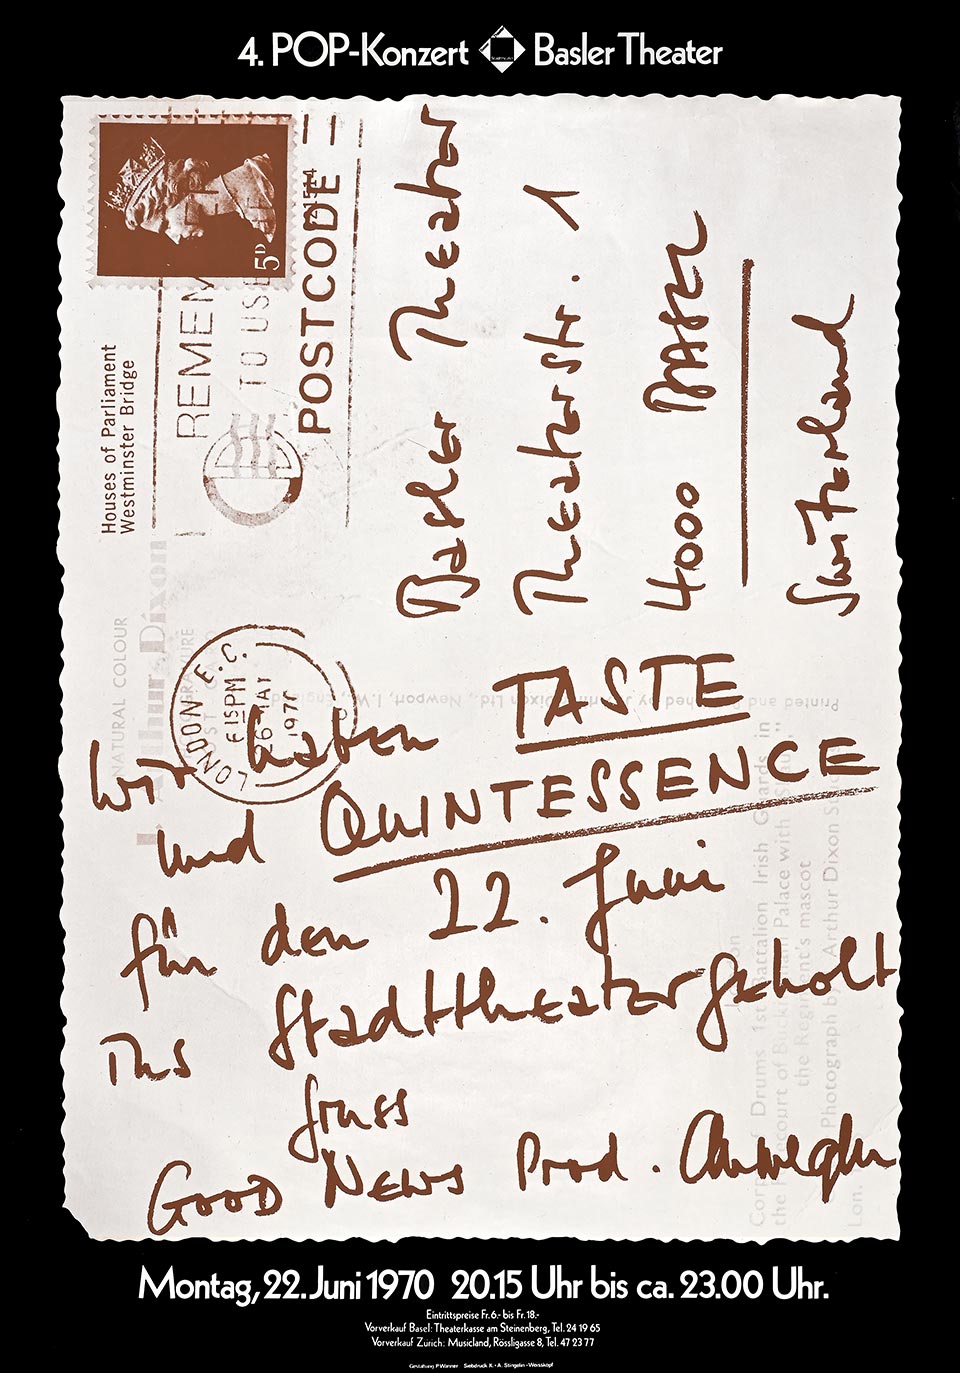 4. POP-Konzert Basler Theater
5D
REMEM
TO USE
POSTCODE
Houses of Parliament
Westminster Bridge
Basler Theater
Theaterstr. 1
4000 BASEL
Switzerland
NATURAL COLOUR
Arthur Dixon
LONDON E.C.
15PM
26 MAY
1970
Printed and Published by J. Arthur Dixon Ltd., Newport, I.W., England
Wir haben TASTE
und QUINTESSENCE
für den 22. Juni
ins Stadttheater geholt
Gruss
GOOD NEWS Prod.
Drums 1st Battalion Irish Guards in
the Forecourt of Buckingham Palace with
the Regiment's mascot
Photograph by Arthur Dixon
Montag, 22. Juni 1970 20.15 Uhr bis ca. 23.00 Uhr.
Eintrittspreise Fr. 6.- bis Fr. 18.-
Vorverkauf Basel: Theaterkasse am Steinenberg, Tel. 24 19 65
Vorverkauf Zürich: Musicland, Rössligasse 8, Tel. 47 23 77
Gestaltung P. Wanner Siebdruck K. + A. Stingelin - Weisskopf